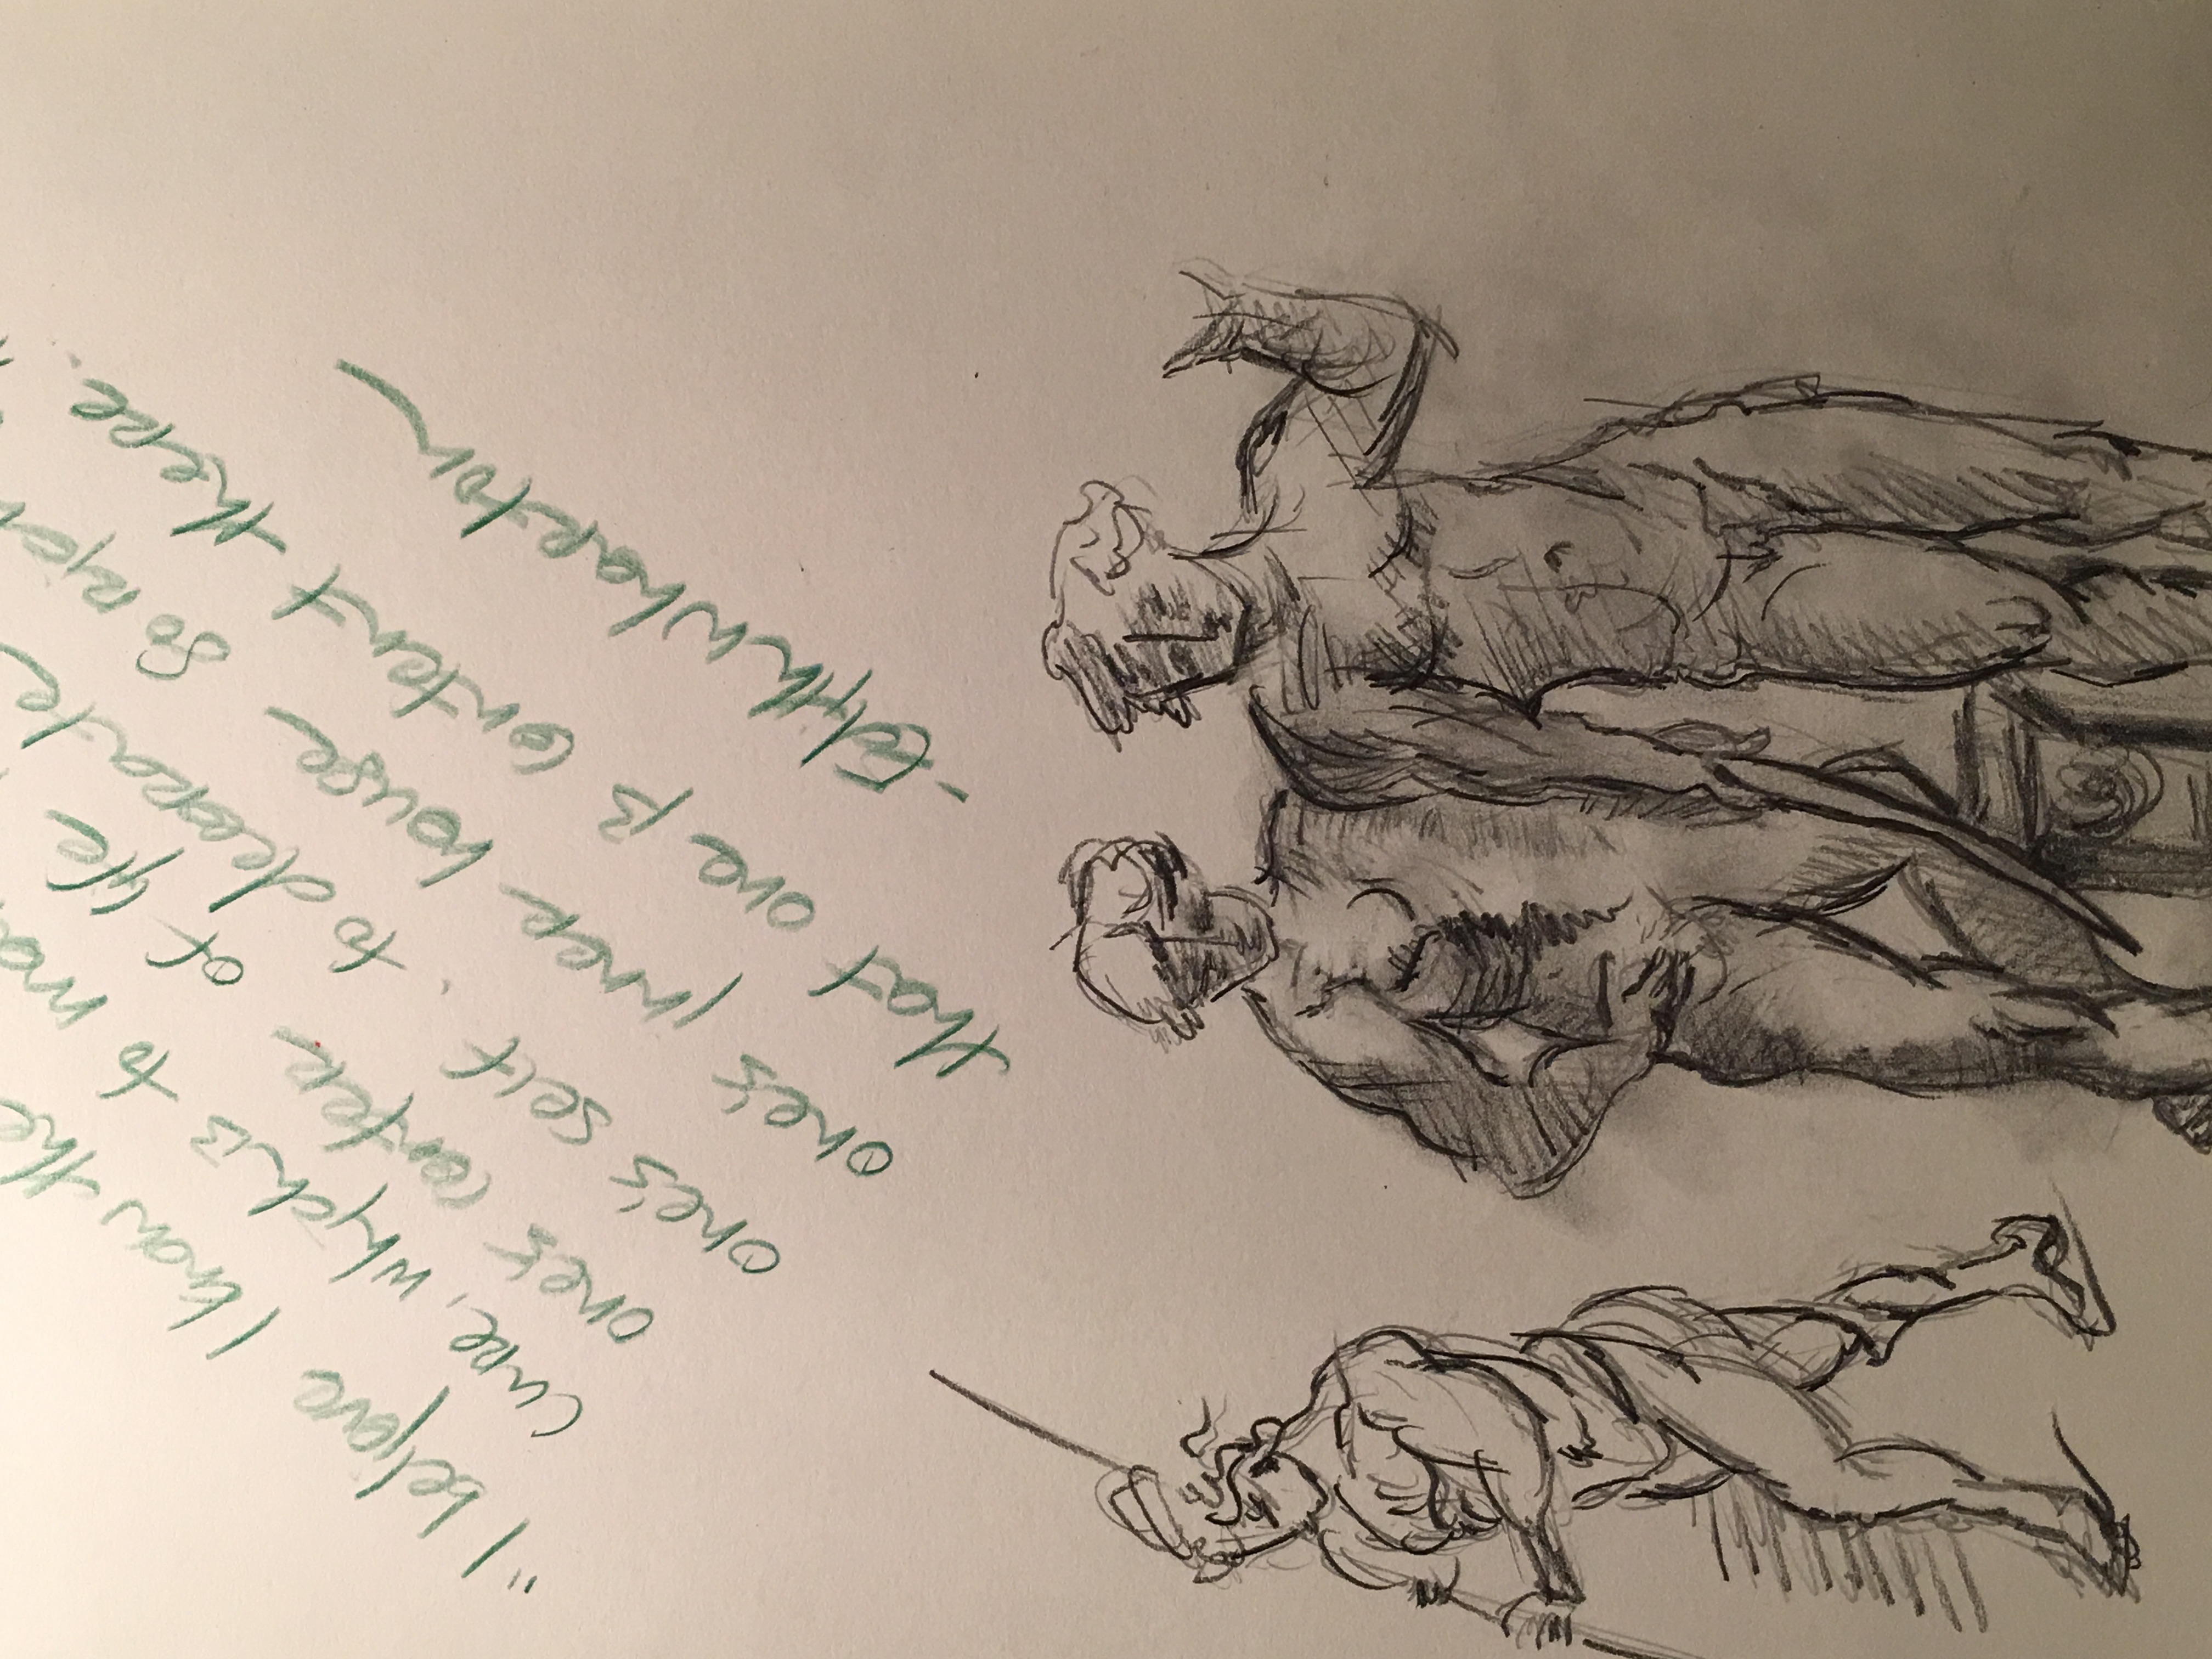 "I believe I know the
cure, which is to
one's center of life
one's self. to decorate
one's inner house so
that one is content there.
- Edith Wharton